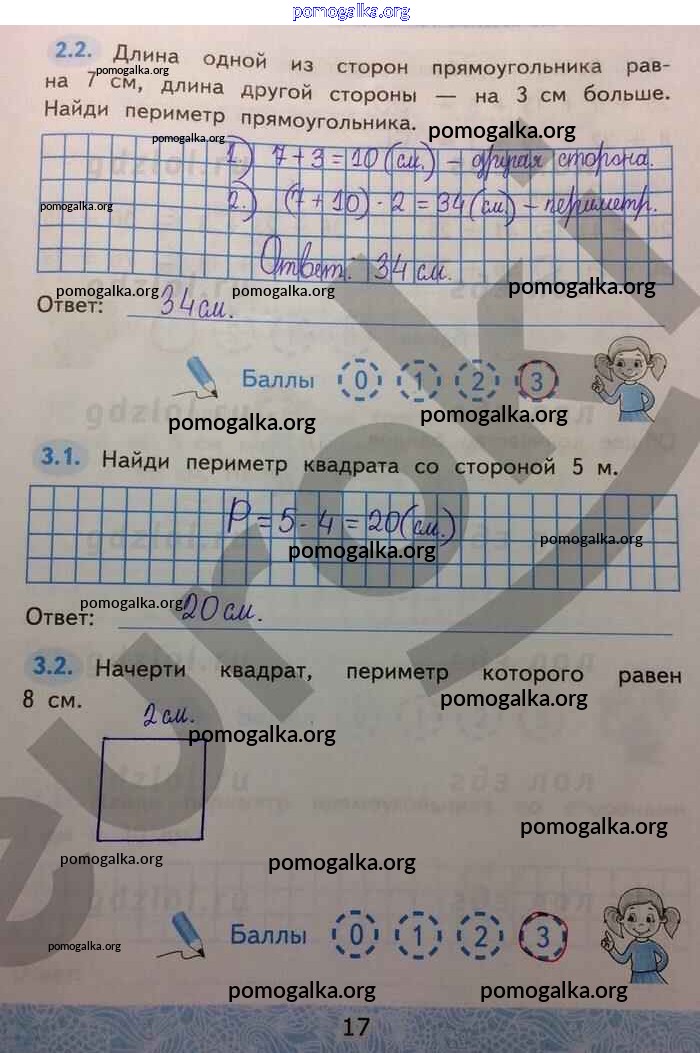 pomogalka.org
2.2. Длина одной из сторон прямоугольника рав-
pomogalka.org
на 7 см, длина другой стороны — на 3 см больше.
Найди периметр прямоугольника.
pomogalka.org
pomogalka.org
1.) 7 + 3 = 10 (см.) – другая сторона.
2.) (7 + 10) · 2 = 34 (см.) – периметр.
pomogalka.org
Ответ: 34 см.
pomogalka.org
pomogalka.org
pomogalka.org
Ответ: 34 см.
Баллы 0 1 2 3
pomogalka.org
pomogalka.org
3.1. Найди периметр квадрата со стороной 5 м.
P = 5 · 4 = 20 (см.)
pomogalka.org
pomogalka.org
pomogalka.org
Ответ: 20 см.
3.2. Начерти квадрат, периметр которого равен
8 см.
pomogalka.org
2 см.
pomogalka.org
pomogalka.org
pomogalka.org
pomogalka.org
Баллы 0 1 2 3
pomogalka.org
pomogalka.org
pomogalka.org
17
euroki